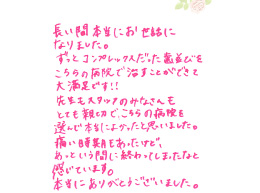 長い間本当にお世話に
なりました。
ずっとコンプレックスだった歯並びを
こちらの病院で治すことができて
大満足です!!
先生もスタッフのみなさんも
とても親切で、こちらの病院を
選んで本当によかったと思いました。
痛い時期もあったけど、
あっという間に終わってしまったなと
感じています。
本当にありがとうございました。